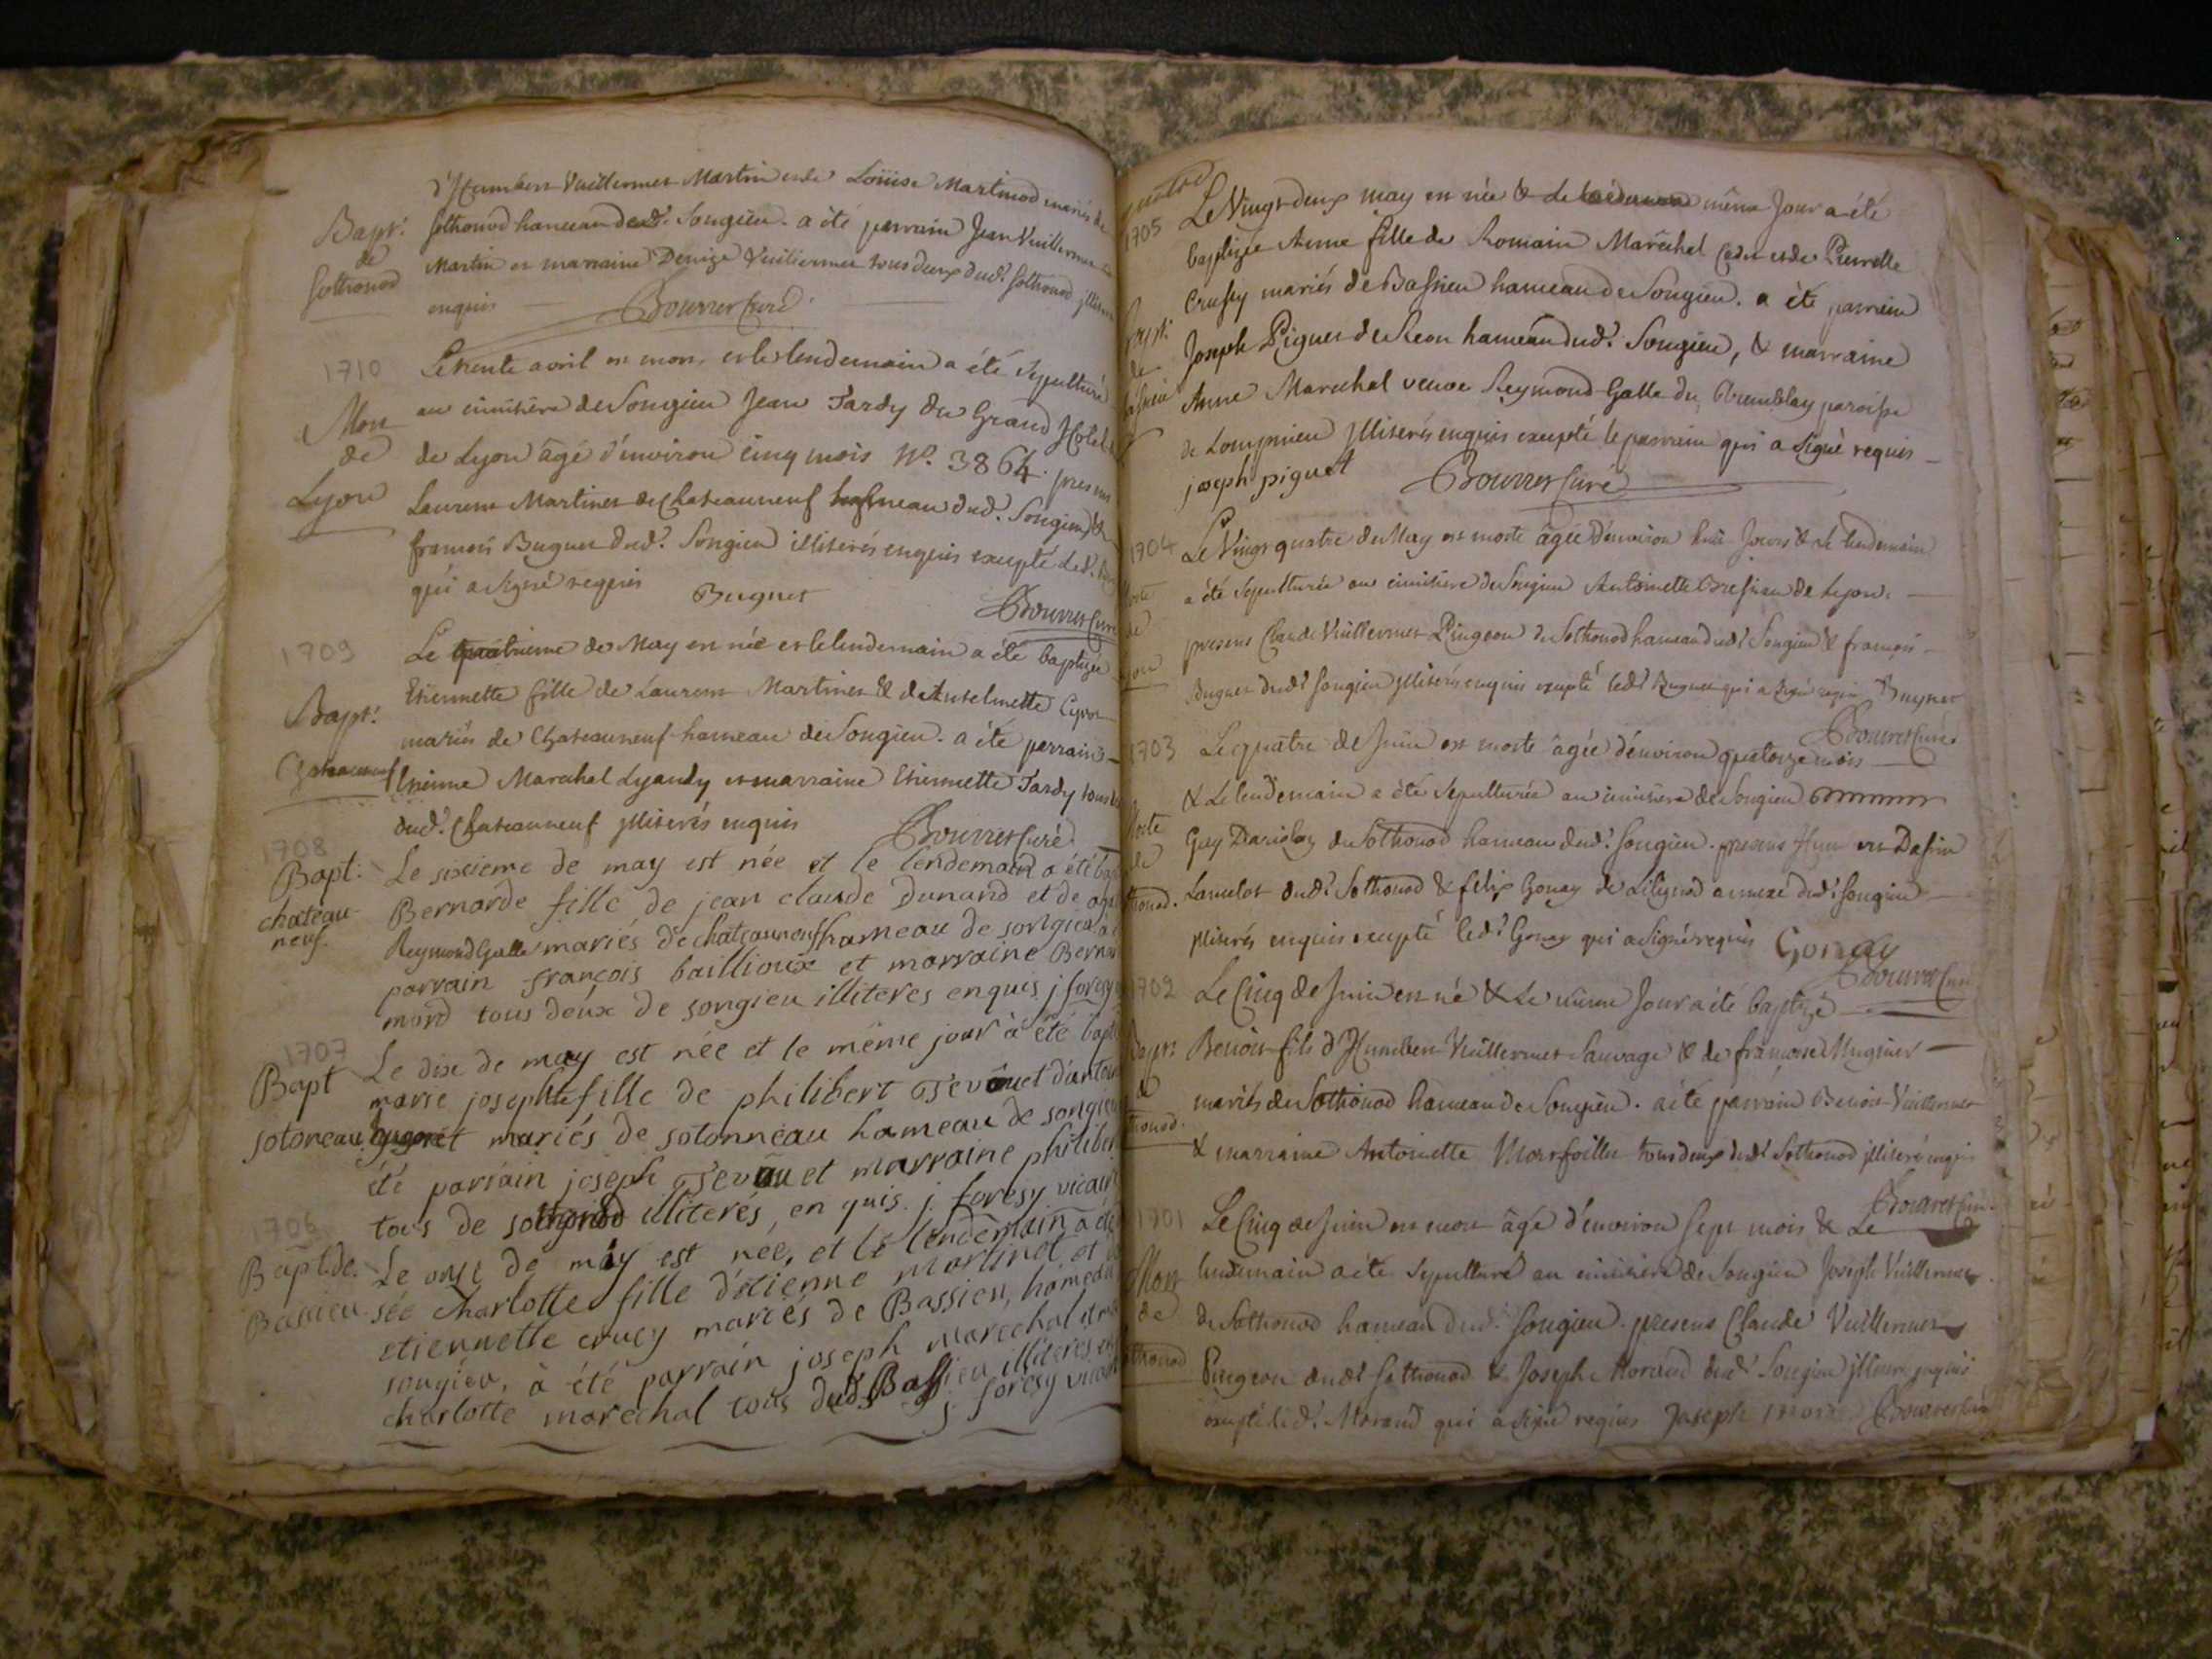 d'Humbert Vuillermet Martin et de Loüise Martinod mariés de
Bapt.
de
Sothonod
Sothonod hameau dud. Songieu. a été parrain Jean Vuillermet
Martin et marraine Denize Vuillermet tous deux dud. Sothonod
enquis Bourret Curé
1710
Mort
de
Lyon
Le trente avril est mort et le lendemain a été sepulturé
au cimitiere de Songieu Jean Tardy du Grand Hotel
de Lyon âgé d'environ cinq mois N°. 3864. presens
Laurent Martinet de Chateauneuf hameau dud. Songieu &
francois Buguet dud. Songieu illiterés enquis excepté led.
qui a signé requis Buguet
Bourret Curé
1709
Bapt.
Chateauneuf
Le quatrieme de May est née et le lendemain a été baptizée
Etiennette fille de Laurent Martinet & de Antelmette
mariés de Chateauneuf hameau de Songieu. a été parrain
Etienne Marechal Lyandy et marraine Etiennette Tardy tous
dud. Chateauneuf illiterés enquis Bourret Curé
1708
Bapt:
chateau-
neuf.
Le sixieme de may est née et le lendemain a été
Bernarde fille de jean claude Dunand et de
Reymond Galle mariés de chateauneuf hameau de songieu a
parrain françois baillioux et marraine Bernar
mond tous deux de songieu illiteres enquis j foresy
1707
Bapt
sotoneau
Le dix de may est née et le même jour à été
marie josephte fille de philibert Tevenet d'antoi
mariés de sotonneau hameau de songieu
été parrain joseph et marraine philiber
tous de sothonod illiterés, en quis. j. foresy vicaire
1706
Bapt de.
Bassieu
Le onse de may est née, et le lendemain a été
sée Charlotte fille d'etienne martinet et
etiennette crucy mariés de Bassieu, hameau
songieu, à été parrain joseph marechal et
charlotte marechal tous dud. Bassieu illiteres
j. foresy vicaire
1705
Bapt.
de
Le Vingt deux may est née & le même Jour a été
baptizée Anne fille de Romain Maréchal Cadet et de Pierrette
Crussy mariés de Bassieu hameau de Songieu. a été parrain
Joseph Piguet de hameau dud. Songieu, & marraine
Anne Marechal veuve Reymond Galle du paroisse
de Lompnieu illiterés enquis excepté le parrain qui a signé requis
joseph piguet Bourret Curé
1704
Morte
de
Lyon
Le Vingt quatre de May est morte âgée d'environ huit Jours & le lendemain
a été sepulturée au cimitiere de Songieu Antoinette de Lyon.
presens Claude Vuillermet Pingeon de Sothonod hameau dud. Songieu & francois
Buguet dud. Songieu illiterés enquis excepté led. Buguet qui a signé requis Buguet
Bourret Curé
1703
Morte
de
Le quatre de Juin est morte âgée d'environ quatorze mois
& Le lendemain a été sepulturée au cimitiere de Songieu
Guy de Sothonod hameau dud. Songieu. presens
Lancelot dud. Sothonod & felix Gonay de Lilignod annexe dud. Songieu
illiterés enquis excepté led. Gonay qui a signé requis Gonay
Bourret Curé
1702
Bapt.
de
Le Cinq de Juin est né & Le même Jour a été baptizé
Benoit fils d'Humbert Vuillermet Sauvage & de francoise Muguet
mariés de Sothonod hameau de Songieu. a été parrain Benoit Vuillermet
& marraine Antoinette tous deux dud. Sothonod illiterés enquis
Bourret Curé.
1701
Mort
de
Sothonod
Le Cinq de Juin est mort âgé d'environ sept mois & Le
lendemain a été sepulturé au cimitiere de Songieu Joseph Vuillermet
de Sothonod hameau dud. Songieu. presens Claude Vuillermet
Pingeon dud. Sothonod & Joseph Morand dud. Songieu
excepté led. Morand qui a signé requis Joseph Bourret Curé